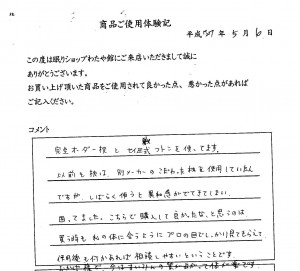 商品ご使用体験記
平成 27 年 5 月 6 日
この度は眠りショップわたや館にご来店いただきまして誠に
ありがとうございます。
お買い上げ頂いた商品をご使用されて良かった点、悪かった点があれば
ご記入ください。
コメント
完全オーダー枕と 敷 フトンを使ってます。
以前も枕は、別メーカーのこだわった枕を使用していたん
ですが、しばらく使うと違和感がでてきてしまい
困ってました。こちらで購入して良かったな、と思うのは
買う時も私の体に合うようにプロの目でしっかり見てもらえて
使用後も何かあれば相談しやすいということです。